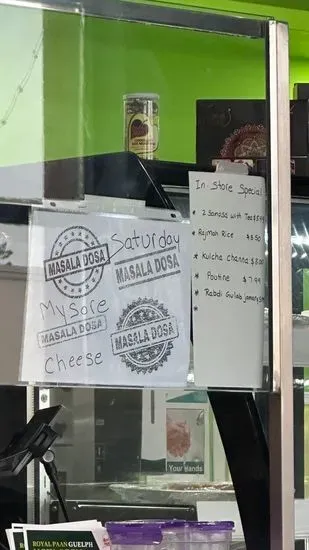 In Store Special
* 2 Samosa with Tea $5.49
* Rajmah Rice $8.50
* Kulcha Channa $8.00
* Poutine $7.99
* Rabdi Gulab Jamun
*
MASALA DOSA
Saturday
MASALA DOSA
Mysore
MASALA DOSA
MASALA DOSA
Cheese
Your Hands
ROYAL PAAN GUELPH